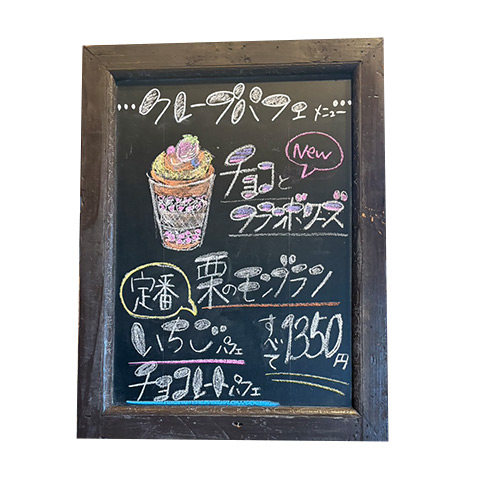 …クレープパフェメニュー…
New
チョコと
フランボワーズ
定番
栗のモンブラン
いちごパフェ
すべて1350円
チョコレートパフェ